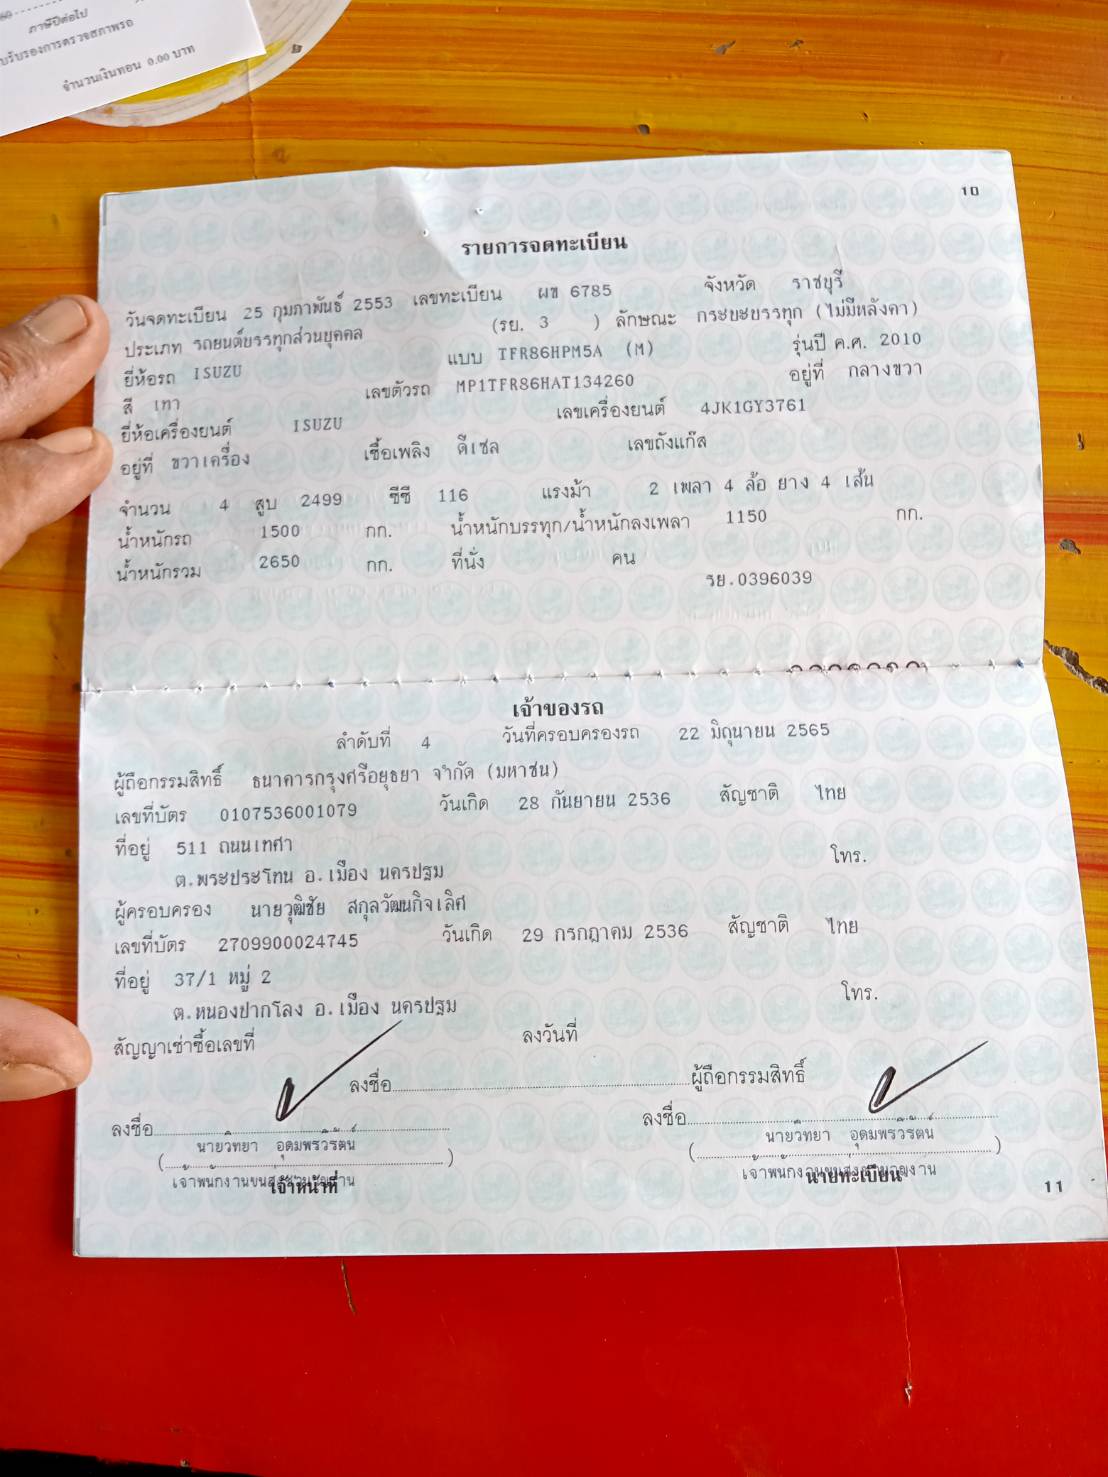 ภาษีปีต่อไป
บรับรองการตรวจสภาพรถ
จำนวนเงินทอน 0.00 บาท
10
รายการจดทะเบียน
วันจดทะเบียน 25 กุมภาพันธ์ 2553 เลขทะเบียน ผข 6785 จังหวัด ราชบุรี
ประเภท รถยนต์บรรทุกส่วนบุคคล (รย. 3 ) ลักษณะ กระบะบรรทุก (ไม่มีหลังคา)
ยี่ห้อรถ ISUZU แบบ TFR86HPM5A (M) รุ่นปี ค.ศ. 2010
สี เทา เลขตัวรถ MP1TFR86HAT134260 อยู่ที่ กลางขวา
ยี่ห้อเครื่องยนต์ ISUZU เลขเครื่องยนต์ 4JK1GY3761
อยู่ที่ ขวาเครื่อง เชื้อเพลิง ดีเซล เลขถังแก๊ส
จำนวน 4 สูบ 2499 ซีซี 116 แรงม้า 2 เพลา 4 ล้อ ยาง 4 เส้น
น้ำหนักรถ 1500 กก. น้ำหนักบรรทุก/น้ำหนักลงเพลา 1150 กก.
น้ำหนักรวม 2650 กก. ที่นั่ง คน
รย.0396039
เจ้าของรถ
ลำดับที่ 4 วันที่ครอบครองรถ 22 มิถุนายน 2565
ผู้ถือกรรมสิทธิ์ ธนาคารกรุงศรีอยุธยา จำกัด (มหาชน)
เลขที่บัตร 0107536001079 วันเกิด 28 กันยายน 2536 สัญชาติ ไทย
ที่อยู่ 511 ถนนเทศา
ต.พระประโทน อ.เมือง นครปฐม โทร.
ผู้ครอบครอง นายวุฒิชัย สกุลวัฒนกิจเลิศ
เลขที่บัตร 2709900024745 วันเกิด 29 กรกฎาคม 2536 สัญชาติ ไทย
ที่อยู่ 37/1 หมู่ 2
ต.หนองปากโลง อ.เมือง นครปฐม โทร.
สัญญาเช่าซื้อเลขที่ ลงวันที่
ลงชื่อ ผู้ถือกรรมสิทธิ์
ลงชื่อ ลงชื่อ
นายวิทยา อุดมพรวิรัตน์ นายวิทยา อุดมพรวิรัตน์
( ) ( )
เจ้าพนักงานขนส่งชำนาญงาน เจ้าพนักงานขนส่งชำนาญงาน
เจ้าหน้าที่ นายทะเบียน
11